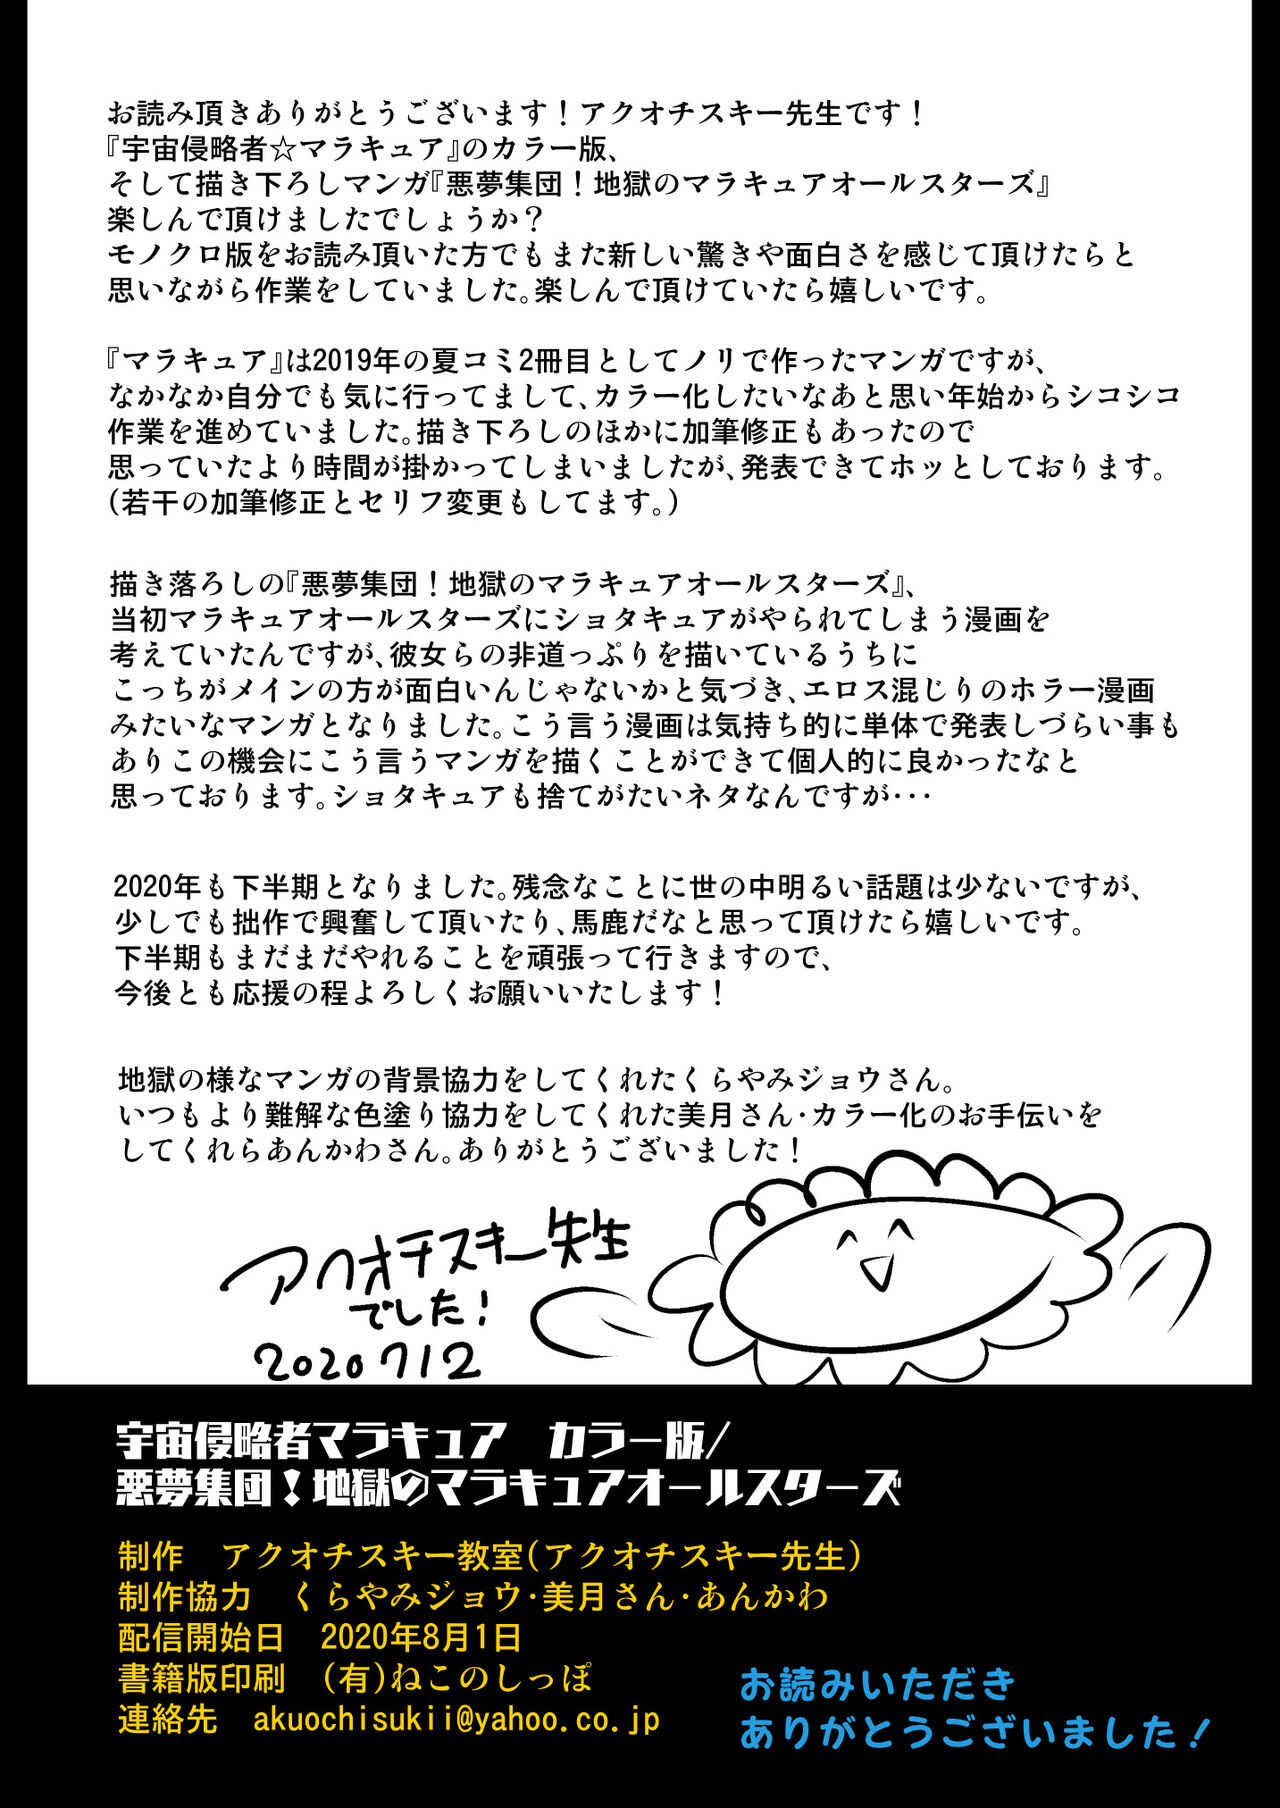 お読み頂きありがとうございます！アクオチスキー先生です！
『宇宙侵略者☆マラキュア』のカラー版、
そして描き下ろしマンガ『悪夢集団！地獄のマラキュアオールスターズ』
楽しんで頂けましたでしょうか？
モノクロ版をお読み頂いた方でもまた新しい驚きや面白さを感じて頂けたらと
思いながら作業をしていました。楽しんで頂けていたら嬉しいです。
『マラキュア』は2019年の夏コミ2冊目としてノリで作ったマンガですが、
なかなか自分でも気に行ってまして、カラー化したいなあと思い年始からシコシコ
作業を進めていました。描き下ろしのほかに加筆修正もあったので
思っていたより時間が掛かってしまいましたが、発表できてホッとしております。
（若干の加筆修正とセリフ変更もしてます。）
描き落ろしの『悪夢集団！地獄のマラキュアオールスターズ』、
当初マラキュアオールスターズにショタキュアがやられてしまう漫画を
考えていたんですが、彼女らの非道っぷりを描いているうちに
こっちがメインの方が面白いんじゃないかと気づき、エロス混じりのホラー漫画
みたいなマンガとなりました。こう言う漫画は気持ち的に単体で発表しづらい事も
ありこの機会にこう言うマンガを描くことができて個人的に良かったなと
思っております。ショタキュアも捨てがたいネタなんですが・・・
2020年も下半期となりました。残念なことに世の中明るい話題は少ないですが、
少しでも拙作で興奮して頂いたり、馬鹿だなと思って頂けたら嬉しいです。
下半期もまだまだやれることを頑張って行きますので、
今後とも応援の程よろしくお願いいたします！
地獄の様なマンガの背景協力をしてくれたくらやみジョウさん。
いつもより難解な色塗り協力をしてくれた美月さん・カラー化のお手伝いを
してくれらあんかわさん。ありがとうございました！
アクオチスキー先生
でした！
2020712
宇宙侵略者マラキュア　カラー版/
悪夢集団！地獄のマラキュアオールスターズ
制作　アクオチスキー教室（アクオチスキー先生）
制作協力　くらやみジョウ・美月さん・あんかわ
配信開始日　2020年8月1日
書籍版印刷　（有）ねこのしっぽ
連絡先　akuochisukii@yahoo.co.jp
お読みいただき
ありがとうございました！